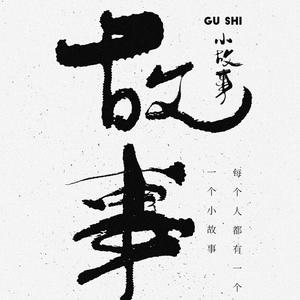 故事
GU SHI
小故事
每个人都有一个
一个小故事